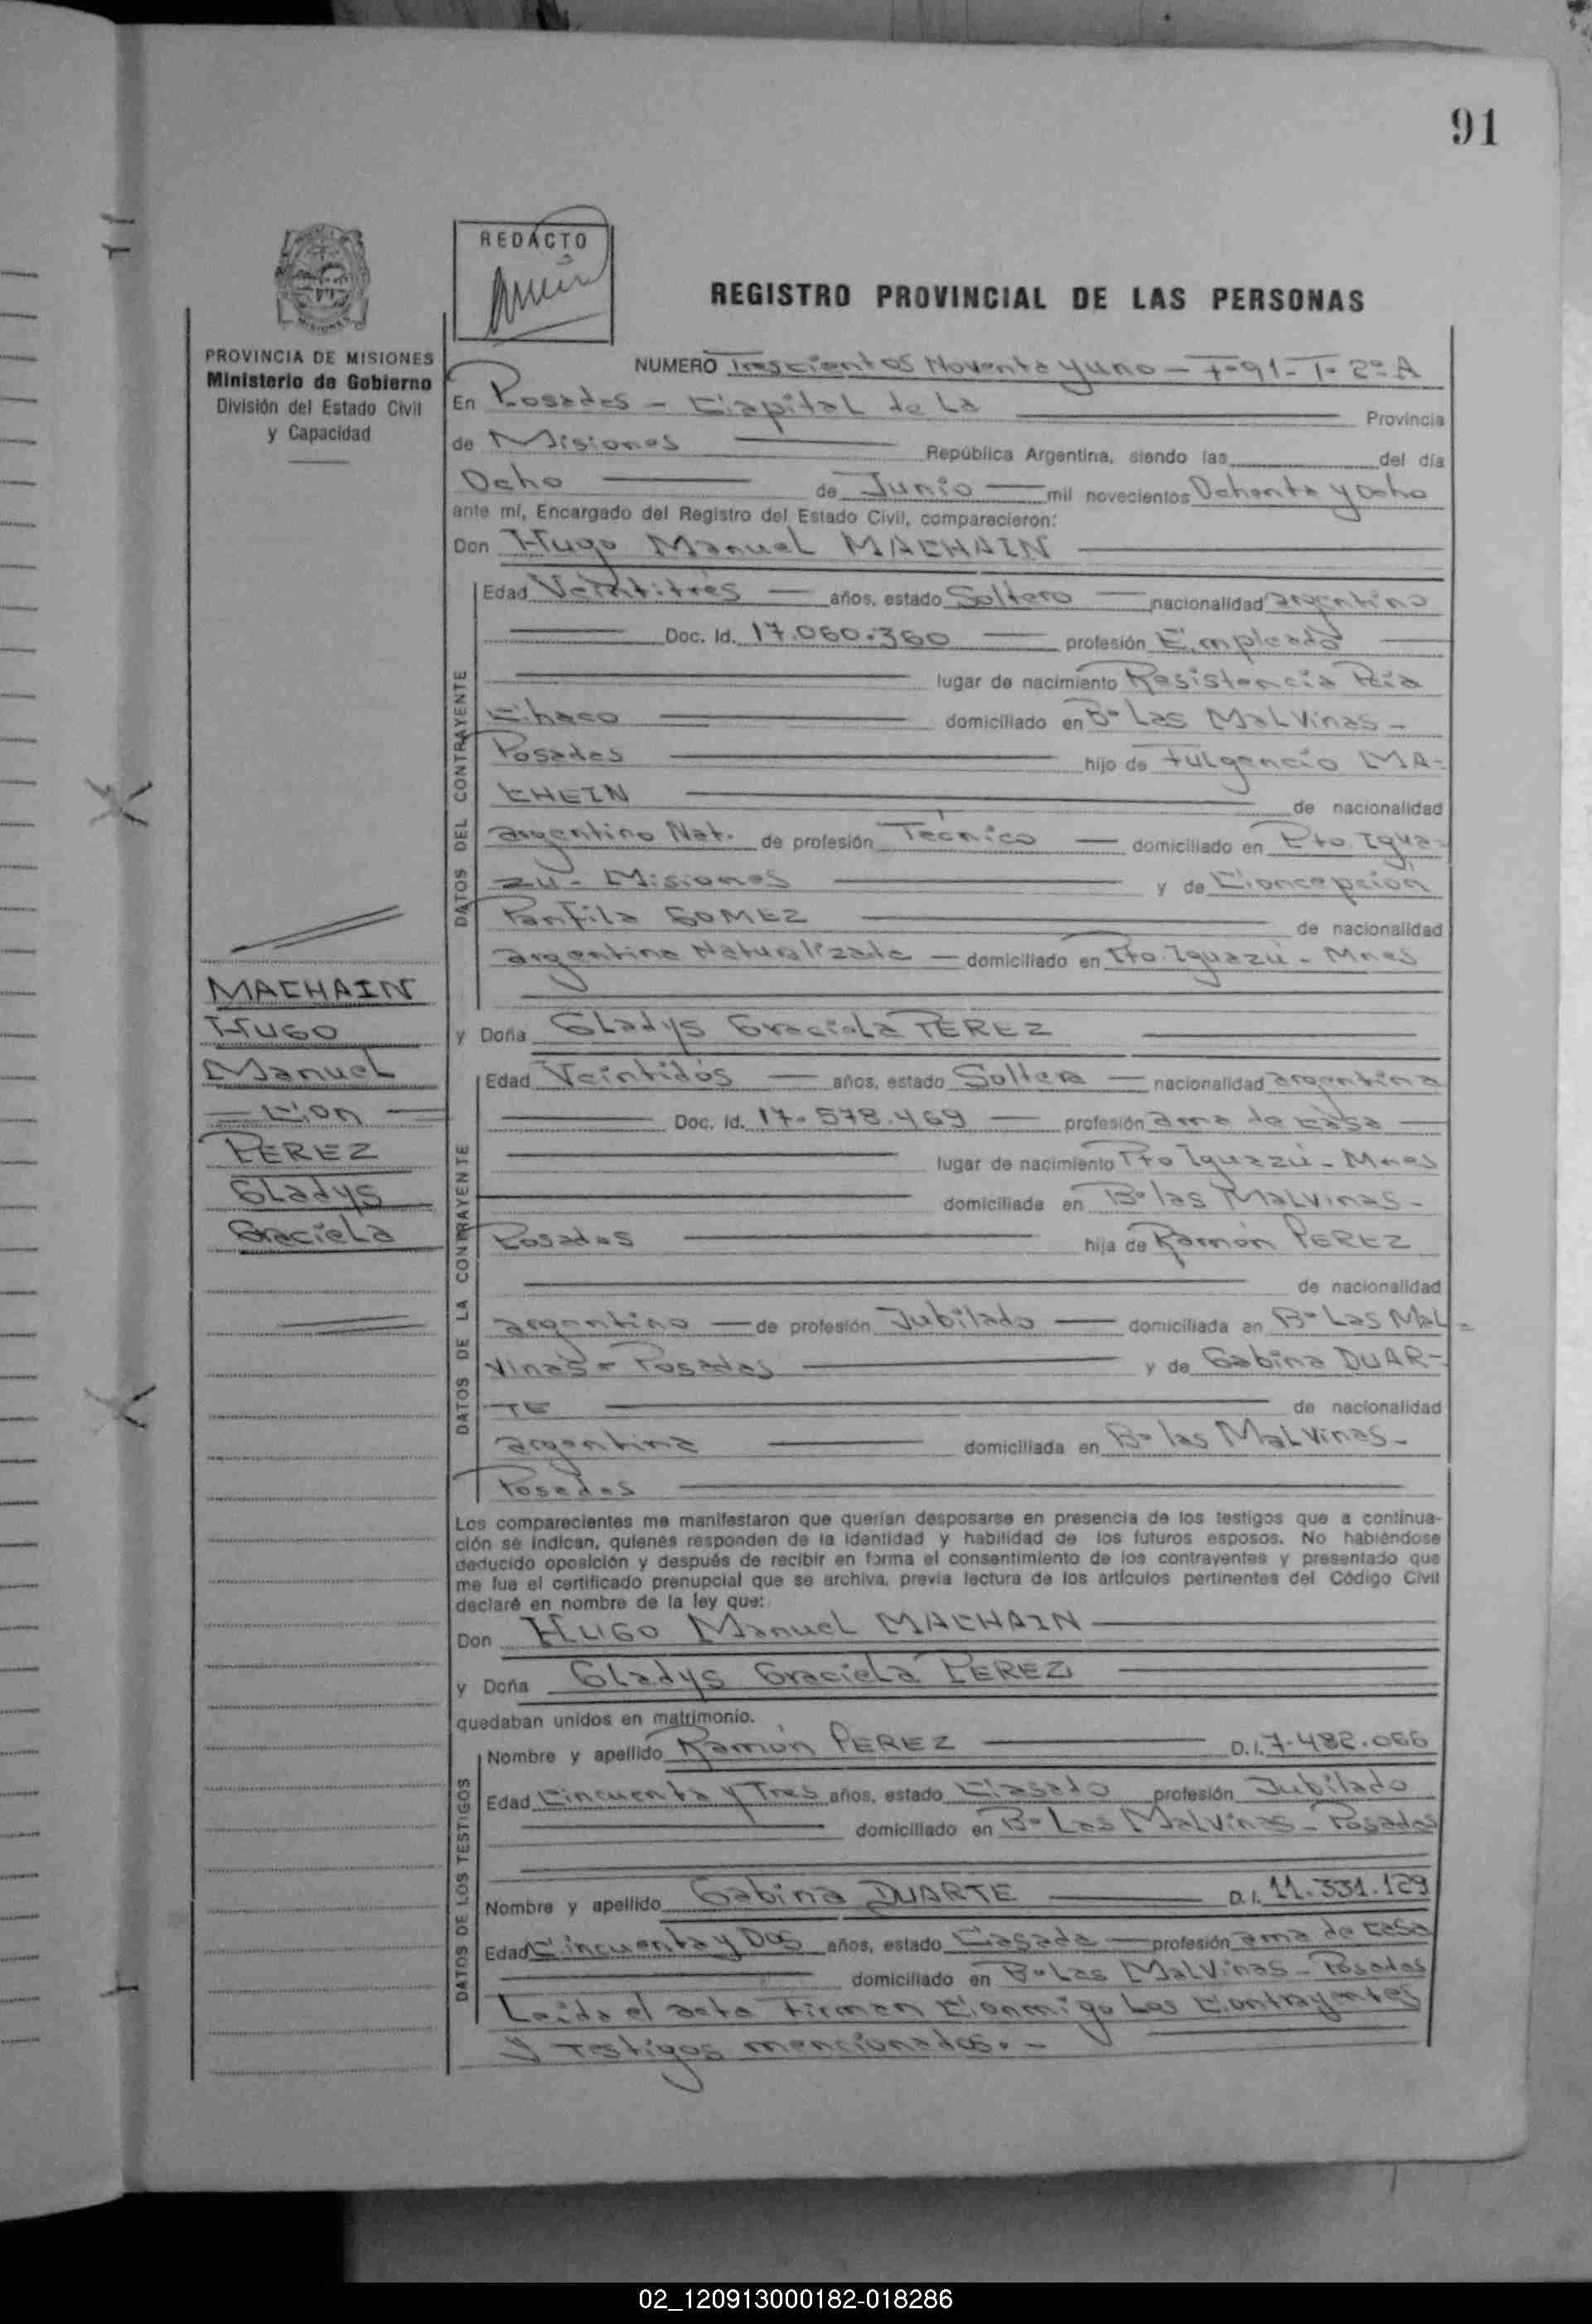 91
REDACTO
REGISTRO PROVINCIAL DE LAS PERSONAS
PROVINCIA DE MISIONES
Ministerio de Gobierno
División del Estado Civil
y Capacidad
NUMERO Trescientos Noventa y uno - F-91- T- 2º A
En Posadas - Capital de La Provincia
de Misiones República Argentina, siendo las del día
Ocho de Junio mil novecientos Ochenta y ocho
ante mí, Encargado del Registro del Estado Civil, comparecieron:
Don Hugo Manuel MACHAIN
DATOS DEL CONTRAYENTE
Edad Veintitrés años, estado Soltero nacionalidad argentino
Doc. Id. 17.060.360 profesión Empleado
lugar de nacimiento Resistencia Pcia
Chaco domiciliado en Bº Las Malvinas -
Posadas hijo de Fulgencio MA-
CHEIN de nacionalidad
argentino Nat. de profesión Técnico domiciliado en Pto. Igua-
zú - Misiones y de Concepción
Panfila GOMEZ de nacionalidad
argentina Naturalizada domiciliado en Pto. Iguazú - Mnes
MACHAIN
HUGO
Manuel
= Con =
PEREZ
Gladys
Graciela
y Doña Gladys Graciela PEREZ
DATOS DE LA CONTRAYENTE
Edad Veintidós años, estado Soltera nacionalidad argentina
Doc. Id. 17.578.469 profesión ama de casa
lugar de nacimiento Pto Iguazú - Mnes
domiciliada en Bº las Malvinas -
Posadas hija de Ramón PEREZ
de nacionalidad
argentino de profesión Jubilado domiciliada en Bº Las Mal-
vinas - Posadas y de Gabina DUAR-
TE de nacionalidad
argentina domiciliada en Bº las Malvinas -
Posadas
Los comparecientes me manifestaron que querían desposarse en presencia de los testigos que a continua-
ción se indican, quienes responden de la identidad y habilidad de los futuros esposos. No habiéndose
deducido oposición y después de recibir en forma el consentimiento de los contrayentes y presentado que
me fue el certificado prenupcial que se archiva, previa lectura de los artículos pertinentes del Código Civil
declaré en nombre de la ley que:
Don HUGO Manuel MACHAIN
y Doña Gladys Graciela PEREZ
quedaban unidos en matrimonio.
DATOS DE LOS TESTIGOS
Nombre y apellido Ramón PEREZ D.I. 7.482.066
Edad Cincuenta y Tres años, estado Casado profesión Jubilado
domiciliado en Bº Las Malvinas - Posadas
Nombre y apellido Gabina DUARTE D.I. 11.331.129
Edad Cincuenta y Dos años, estado Casada profesión ama de casa
domiciliado en Bº Las Malvinas - Posadas
Leida el acta Firman Conmigo Los Contrayentes
y Testigos mencionados. -
02_120913000182-018286